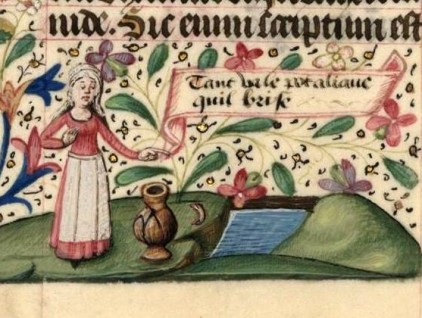 iude. Sic enim scriptum est
Tant va le pot a leaue
quil brise